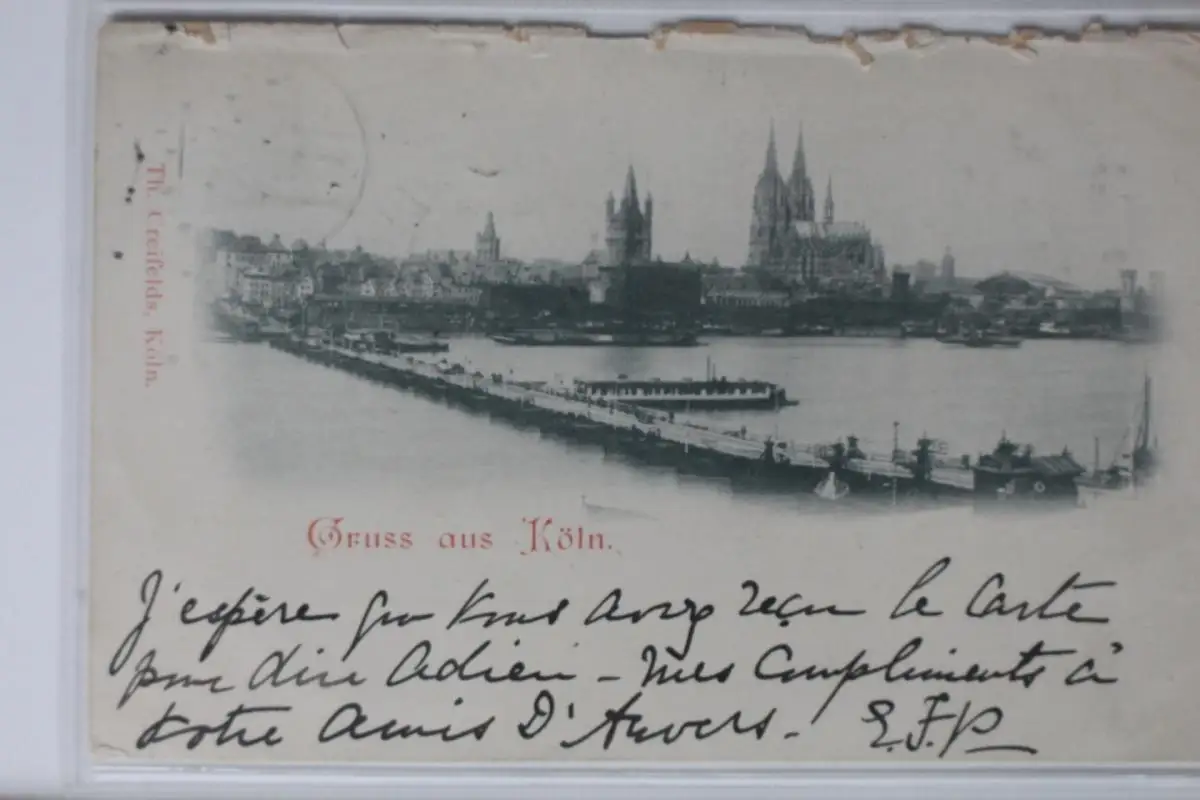 Th. Creifelds, Köln.
Gruss aus Köln.
J'espère que vous avez reçu le Carte
pour dire Adieu - Mes Compliments à
Votre Amis D'Anvers. E.F.P